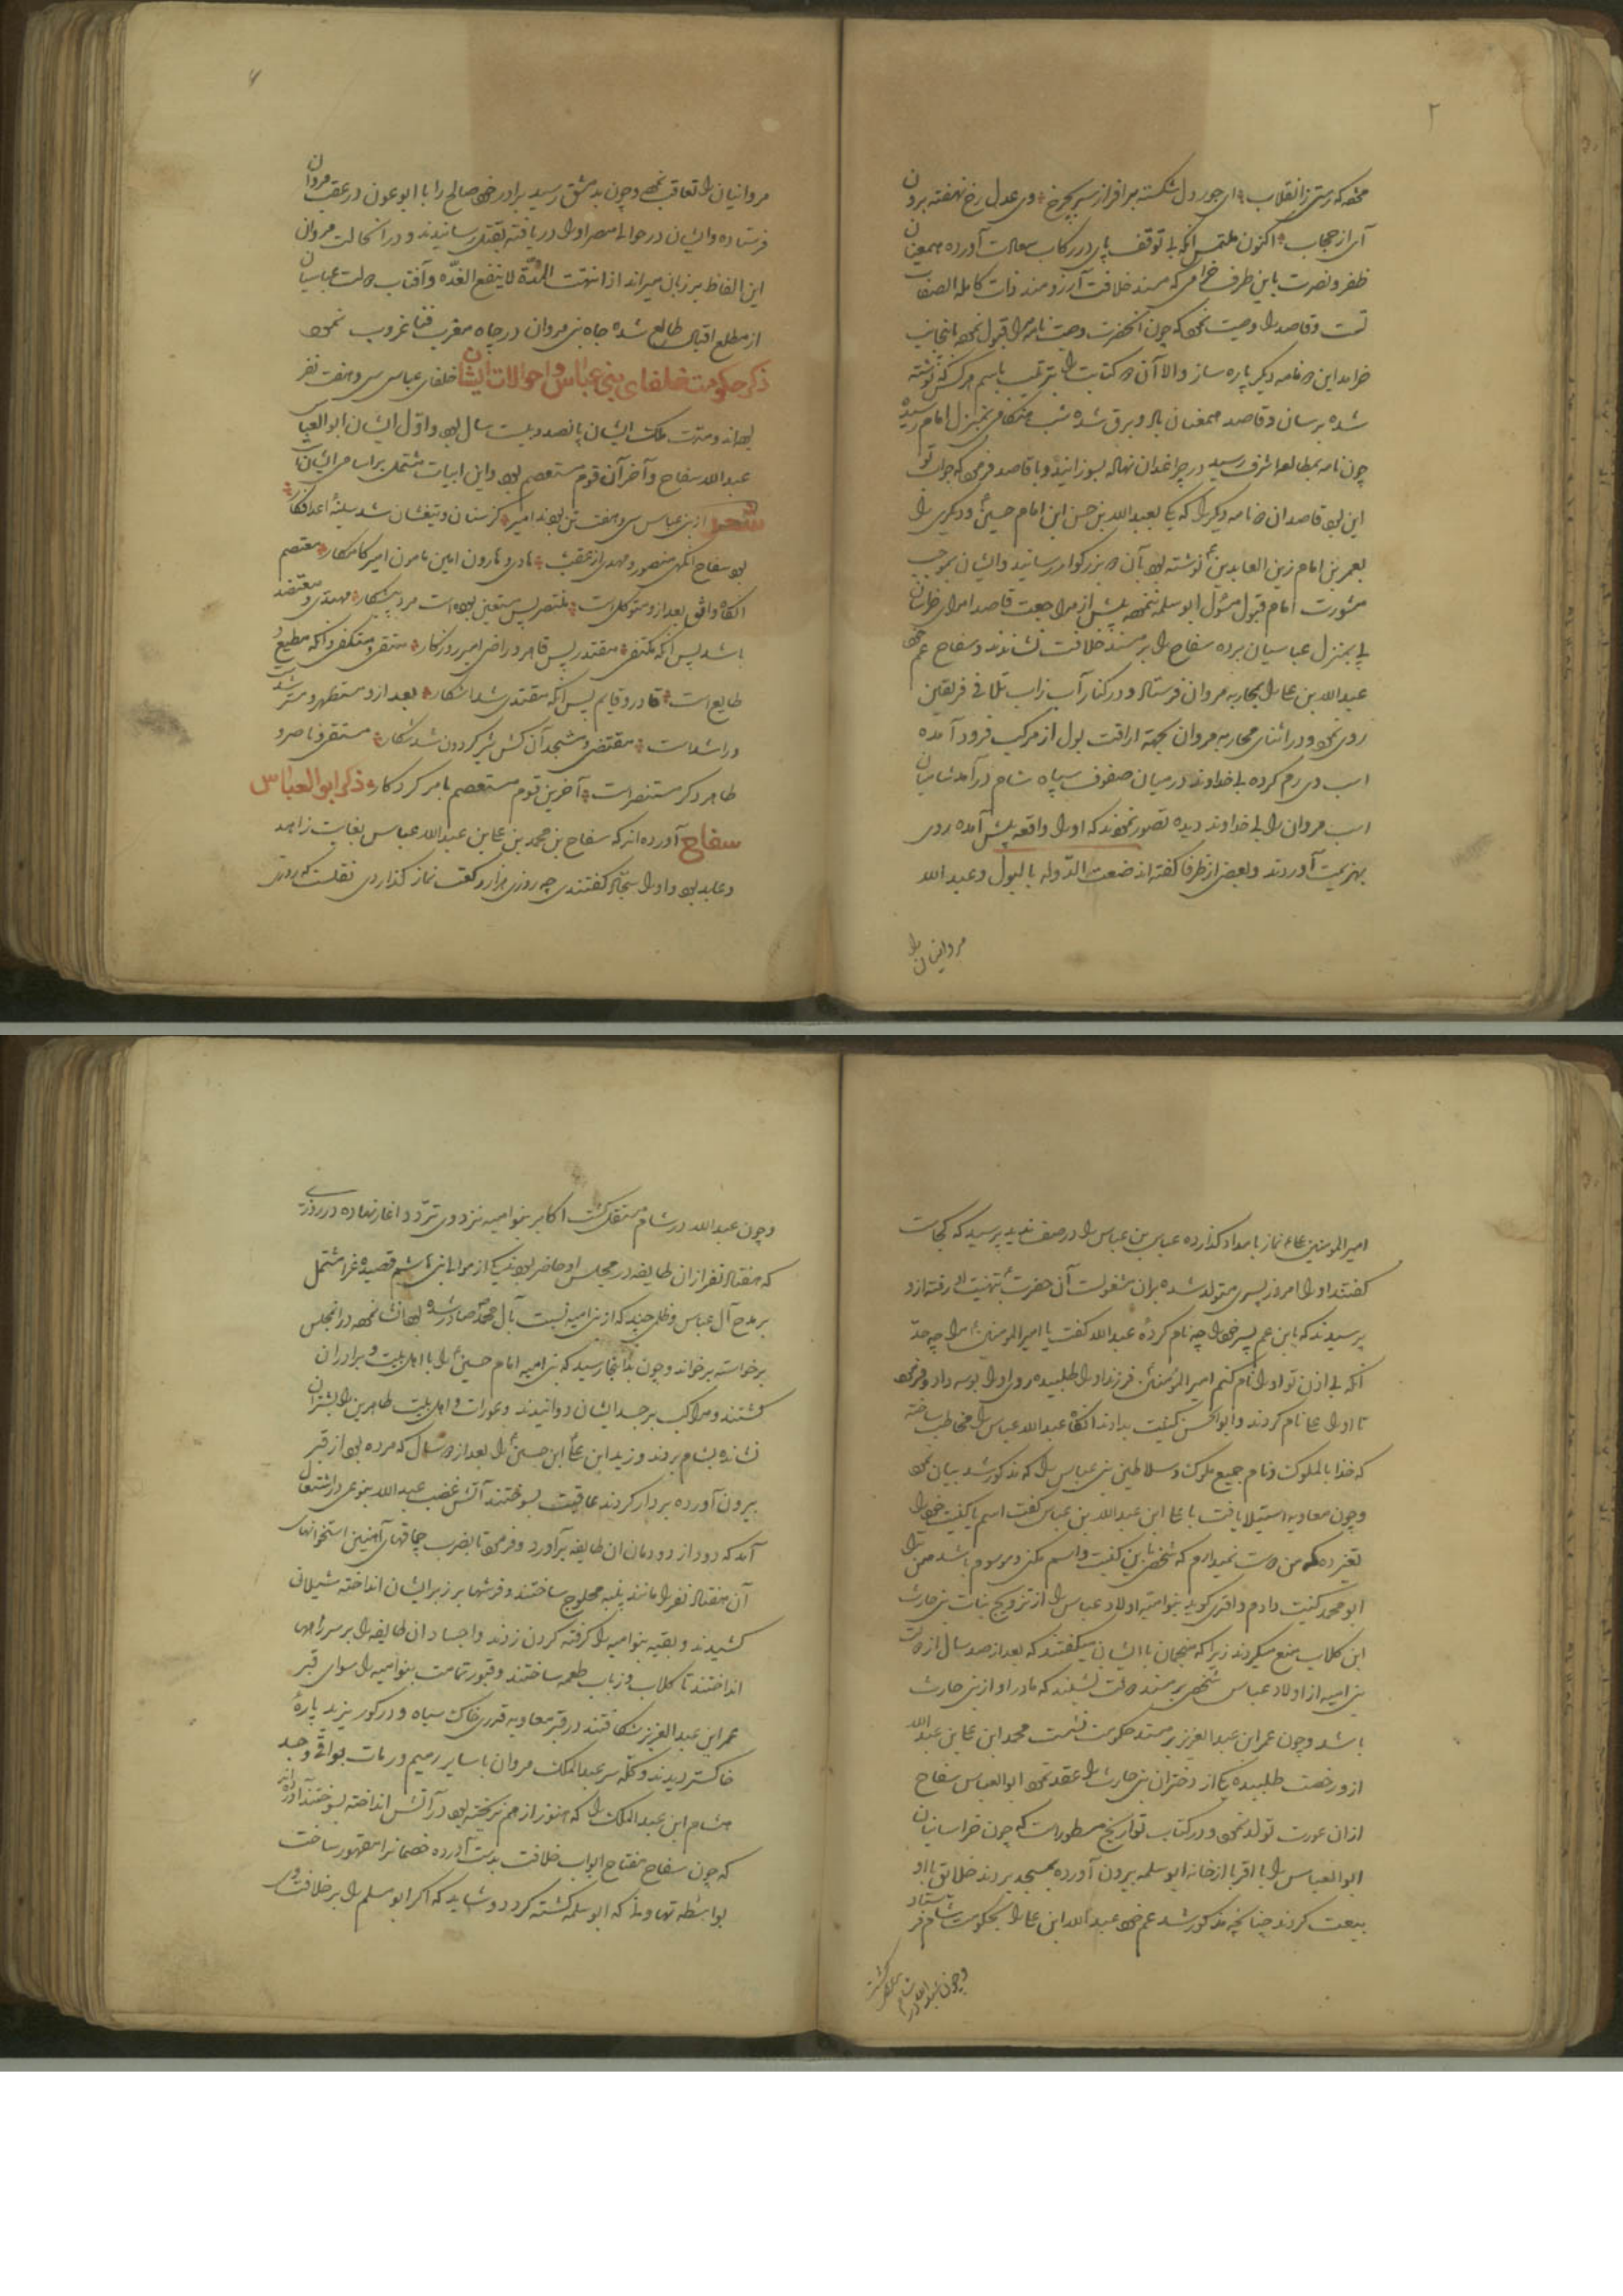 ۲
ظفر و نصرت باین طرف خرامی که مسند خلافت آرزومند ذات کامله الصفات
تمت و قاصد را وصیت نمود که چون آنحضرت نامه مرا قبول نموده اینجانب
خرامد این دو نامه دیگر پاره ساز والا آن دو کتابت را بترتیب باسم هرکس که نوشته
شده برسان و قاصد همعنان باد و برق شده شب هنگامی بمنزل امام رسیده
چون نامه بمطالعه اشرف رسید در چراغدان نهاده بسوزانید و با قاصد فرمود که جواب تو
این بود قاصد ان دو نامه دیگر را که یکی بعبدالله بن حسن ابن امام حسین و دیگری را
بعمر بن امام زین العابدین نوشته بود بآن دو بزرگوار رسانید و ایشان بموجب
مشورت امام قبول مسئول ابو سلمه ننموده پیش از مراجعت قاصد امرای خراسان
پی بمنزل عباسیان برده سفاح را بر مسند خلافت نشاندند و سفاح عم خود
عبدالله بن علی را بمحاربه مروان فرستاد و در کنار آب زاب تلاقی فریقین
روی نمود و در اثنای محاربه مروان بجهة اراقت بول از مرکب فرود آمده
اسب وی رم کرده بی خداوند در میان صفوف سپاه شام درآمد شامیان
اسب مروان را بی خداوند دیده تصور نمودند که او را واقعه پیش آمده روی
بهزیمت آوردند و بعضی از ظرفا گفته اند ضعت الدوله بالبول و عبد الله
مروانیان را
مروانیان را تعاقب نمود و چون بدمشق رسید برادر خود صالح را با ابو عون در عقب مروان
فرستاده و ایشان در حوالی مصر او را دریافته بقتل رسانیدند و در انحالت مروان
این الفاظ بر زبان میراند اذا انتهت المدّة لا ینفع العدّه و آفتاب دولت عباسیان
از مطلع اقبال طالع شده جاه بنی مروان در چاه مغرب فنا غروب نمود
ذکر حکومت خلفای بنی عباس و احوالات ایشان خلفای عباسی سی و هفت نفر
بوده اند و مدت ملک ایشان پانصد و بیست سال بود و اول ایشان ابو العباس
عبدالله سفاح و آخر آن قوم مستعصم بود و این ابیات مشتمل بر اسامی ایشان
شعر از بنی عباس سی و هفت تن بودند امیر کز سنان و تیغشان شد سینهٔ اعدا فکار
بود سفاح آنگهی منصور و مهدی از عقب هادی و هارون امین مامون امیر کامکار معتصم
آنگاه واثق بعد از و متوکل است منتصر پس مستعین بوده است مرد پیشکار مهتدی و معتضد
باشد پس آنگه مکتفی مقتدر پس قاهر و راضی امیر روزگار متقی و متکفی و آنکه مطیع و
طایع است قادر و قایم پس آنگه مقتدی شد آشکار بعد از و مستظهر و مسترشد
و راشد است مقتضی و مستنجد آن کش شیر گردون شد شکار مستضی و ناصر و
ظاهر دگر مستنصر است آخرین قوم مستعصم بامر کردکار ذکر ابو العباس
سفاح آورده اند که سفاح بن محمد بن علی بن عبدالله عباس بغایت زاهد
و عابد بود و او را سجّاد گفتندی چه روزی هزار رکعت نماز گذاردی نقلست که روزی
امیر المومنین علی نماز بامداد گذارده عباس بن عباس را در صف ندید پرسید که کجاست
گفتند او را امروز پسری متولد شده بران مشغولست آن حضرت بتهنیت او رفته از و
پرسیدند که یابن عم پسر خود را چه نام کردهٔ عبدالله گفت یا امیر المومنین مرا چه حدّ
آنکه بی اذن تو او را نام کنم امیر المومنین فرزند او را طلبیده روی او را بوسه داد و فرمود
تا او را علی نام کردند و ابو الحسن کنیت بدادند آنگاه عبدالله عباس را مخاطب ساخته
که خذ ابا الملوک و نام جمیع ملوک و سلاطین بنی عباس را که مذکور شد بیان نمود
و چون معاویه استیلا یافت با علی ابن عبدالله بن عباس گفت اسم یا کنیت خود را
تغیر ده که من دوست نمیدارم که شخصی باین کنیت و اسم مکنی و موسوم باشد من ترا
ابو محمد کنیت دادم واقدی گوید بنو امیه اولاد عباس را از تزویج بنات بنی حارث
ابن کلاب منع میکردند زیرا که منجمان با ایشان میگفتند که بعد از صد سال از دولت
بنی امیه از اولاد عباس شخصی بر مسند دولت نشیند که مادر او از بنی حارث
باشد و چون عمر ابن عبد العزیز بر مسند حکومت نشست محمد ابن علی بن عبد الله
از و رخصت طلبیده یکی از دختران بنی حارث را عقد نمود ابو العباس سفاح
ازان عورت تولد نمود و در کتاب تواریخ مسطور است که چون خراسانیان
ابو العباس را با اقربا از خانه ابو سلمه بیرون آورده بمسجد بردند خلائق با او
بیعت کردند چنانچه مذکور شد عم خود عبدالله ابن علی را بحکومت شام فرستاد
و چون عبدالله در شام مستقل گشت
و چون عبدالله در شام مستقل گشت اکابر بنو امیه نزد وی تردد اغاز نهاده در روزی
که هفتاد نفر ازان طایفه در مجلس او حاضر بودند یکی از موالی بنی هاشم قصیده غرا مشتمل
بر مدح آل عباس و ظلمی چند که از بنی امیه نسبت بآل محمد صادر شده بود انشا نموده در انمجلس
برخواسته برخواند و چون بدانجا رسید که بنی امیه امام حسین را با اهل بیت و برادران
کشتند و مراکب بر جسد ایشان دوانیدند و عورات و اهل بیت طاهرین را بشتران
نشانده بشام بردند و زید ابن علی ابن حسین را بعد از دو سال که مرده بود از قبر
بیرون آورده بر دار کردند عاقبت بسوختند آتش غضب عبدالله بنوعی در اشتعال
آمد که دود از دودمان ان طایفه برآورد و فرمود تا بضرب چماقهای آهنین استخوانهای
آن هفتاد نفر را مانند پنبه محلوج ساختند و فرشها بر زبر ایشان انداخته شیلانی
کشیدند و بقیه بنو امیه را گرفته گردن زدند و اجساد ان طایفه را بر سر راهها
انداختند تا کلاب و ذباب طعمه ساختند و قبور تمامت بنو امیه را سوای قبر
عمر ابن عبد العزیز شکافتند در قبر معاویه قدری خاک سیاه و در گور یزید پارهٔ
خاکستر دیدند و کله سر عبدالملک مروان با سایر رمیم و رمات بواقی و جسد
هشام ابن عبد الملک را که هنوز از هم نریخته بود در آتش انداخته بسوختند آورده اند
که چون سفاح مفتاح ابواب خلافت بدست آورده خصمانرا مقهور ساخت
بواسطه تهاونی که ابو سلمه کشته گردد و شاید که اگر ابو مسلم را بر خلافت وی